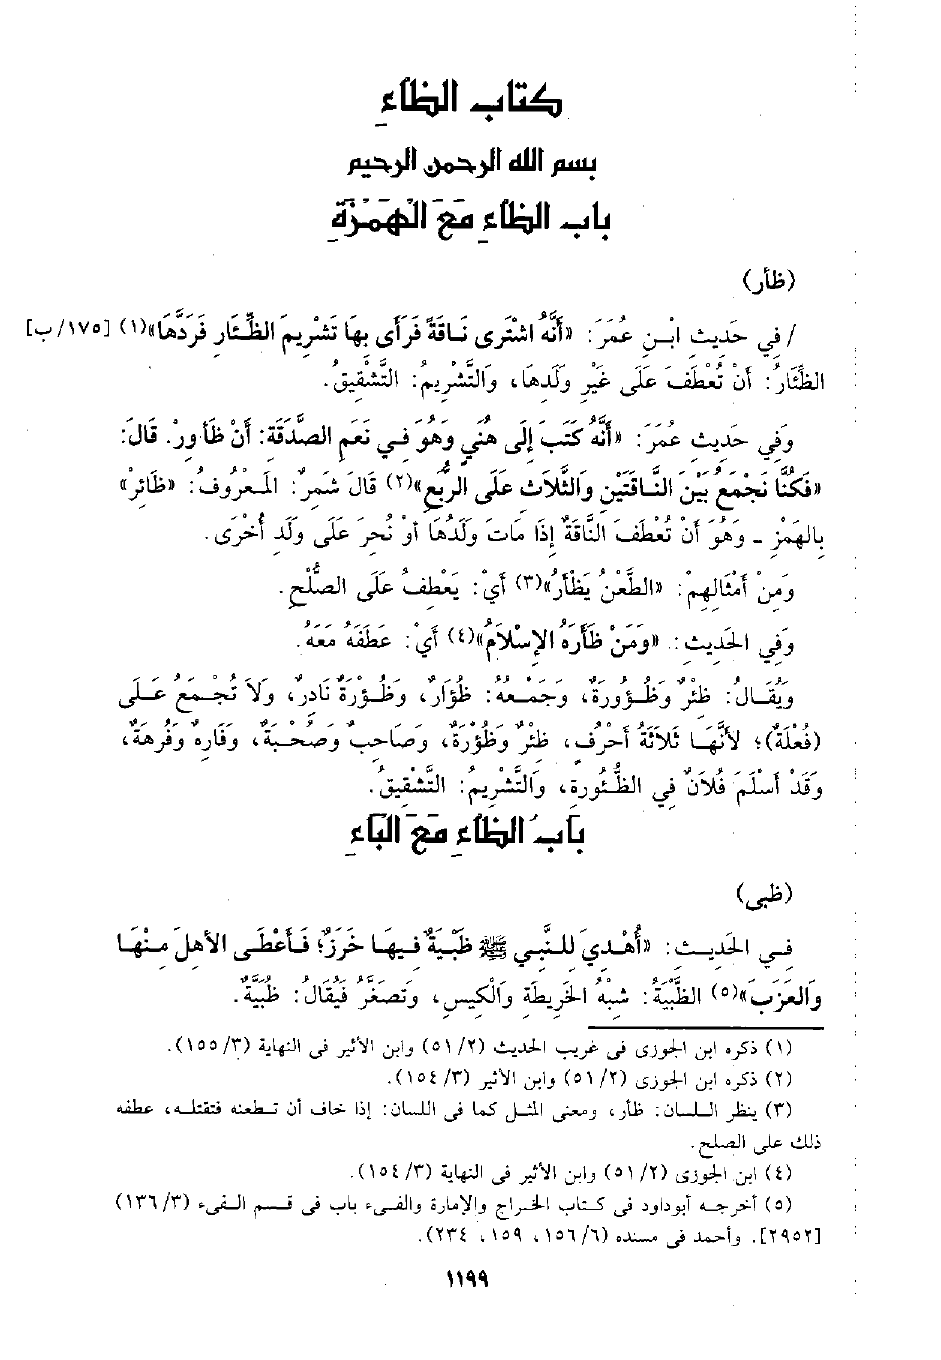 كتاب الظاءِ
بسم الله الرحمن الرحيم
باب الظاءِ مَعَ الْهَمْزَةِ
(ظأر)
/ في حَديث ابْنِ عُمَرَ: «أَنَّهُ اشْتَرى نَاقَةً فَرَأَى بهَا تَشْريمَ الظِّئَار فَرَدَّهَا»(١) [١٧٥/ب]
الظِّئَارُ: أَنْ تُعْطَفَ عَلى غَيْر وَلَدهَا، وَالتَّشْريمُ: التَّشْقيقُ.
وَفي حَديث عُمَرَ: «أَنَّهُ كَتَبَ إلَى هُنَيٍ وَهُوَ في نَعَم الصَّدَقَة: أَنْ ظَأورْ. قَالَ:
«فَكُنَّا نَجْمَعُ بَيْنَ النَّاقَتَيْنِ وَالثَّلاث عَلى الرُّبَعِ»(٢) قَالَ شَمرٌ: المَعْرُوفُ: «ظَائرْ»
بالهَمْز - وَهُوَ أَنْ تُعْطَفَ النَّاقَةُ إذَا مَاتَ وَلَدُهَا أوْ نُحرَ عَلَى وَلَد أُخْرَى.
وَمنْ أَمْثَالهمْ: «الطَّعْنُ يَظْأَرُ»(٣) أَيْ: يَعْطفُ عَلَى الصُّلْحِ.
وَفي الحَديث: «وَمَنْ ظَأَرَهُ الإسْلاَمُ»(٤) أَيْ: عَطَفَهُ مَعَهُ.
وَيُقَالُ: ظئْرٌ وَظُؤورَةٌ، وَجَمْعُهُ: ظُؤَارٌ، وَظُؤرَةٌ نَادرٌ، وَلاَ تُجْمَعُ عَلَى
(فُعْلَةٌ)؛ لأَنَّهَا ثَلاثَةُ أَحْرُف، ظئْرٌ وَظُؤْرَةٌ، وَصَاحبٌ وَصُحْبَةٌ، وَفَارهٌ وَفُرهَةٌ،
وَقَدْ أَسْلَمَ فُلاَنٌ في الظُّئُورة، وَالتَّشْريمُ: التَّشْقيقُ.
بَابُ الظاءِ مَعَ البَاءِ
(ظبى)
في الحَديث: «أُهْديَ للنَّبي ﷺ ظَبْيَةٌ فيهَا خَرَزٌ؛ فَأَعْطَى الأهلَ منْهَا
وَالعَزَبَ»(٥) الظَّبْيَةُ: شبْهُ الخَريطَة وَالْكيس، وَتصَغَّرُ فَيُقَالُ: ظُبَيَّةٌ.
(١) ذكره ابن الجوزى فى غريب الحديث (٥١/٢) وابن الأثير فى النهاية (١٥٥/٣).
(٢) ذكره ابن الجوزى (٥١/٢) وابن الأثير (١٥٤/٣).
(٣) ينظر اللسان: ظأر، ومعنى المثل كما فى اللسان: إذا خاف أن تطعنه فتقتله، عطفه
ذلك على الصلح.
(٤) ابن الجوزى (٥١/٢) وابن الأثير فى النهاية (١٥٤/٣).
(٥) أخرجه أبوداود فى كتاب الخراج والإمارة والفىء باب فى قسم الفىء (١٣٦/٣)
[٢٩٥٢]. وأحمد فى مسنده (١٥٦/٦، ١٥٩، ٢٣٤).
١١٩٩